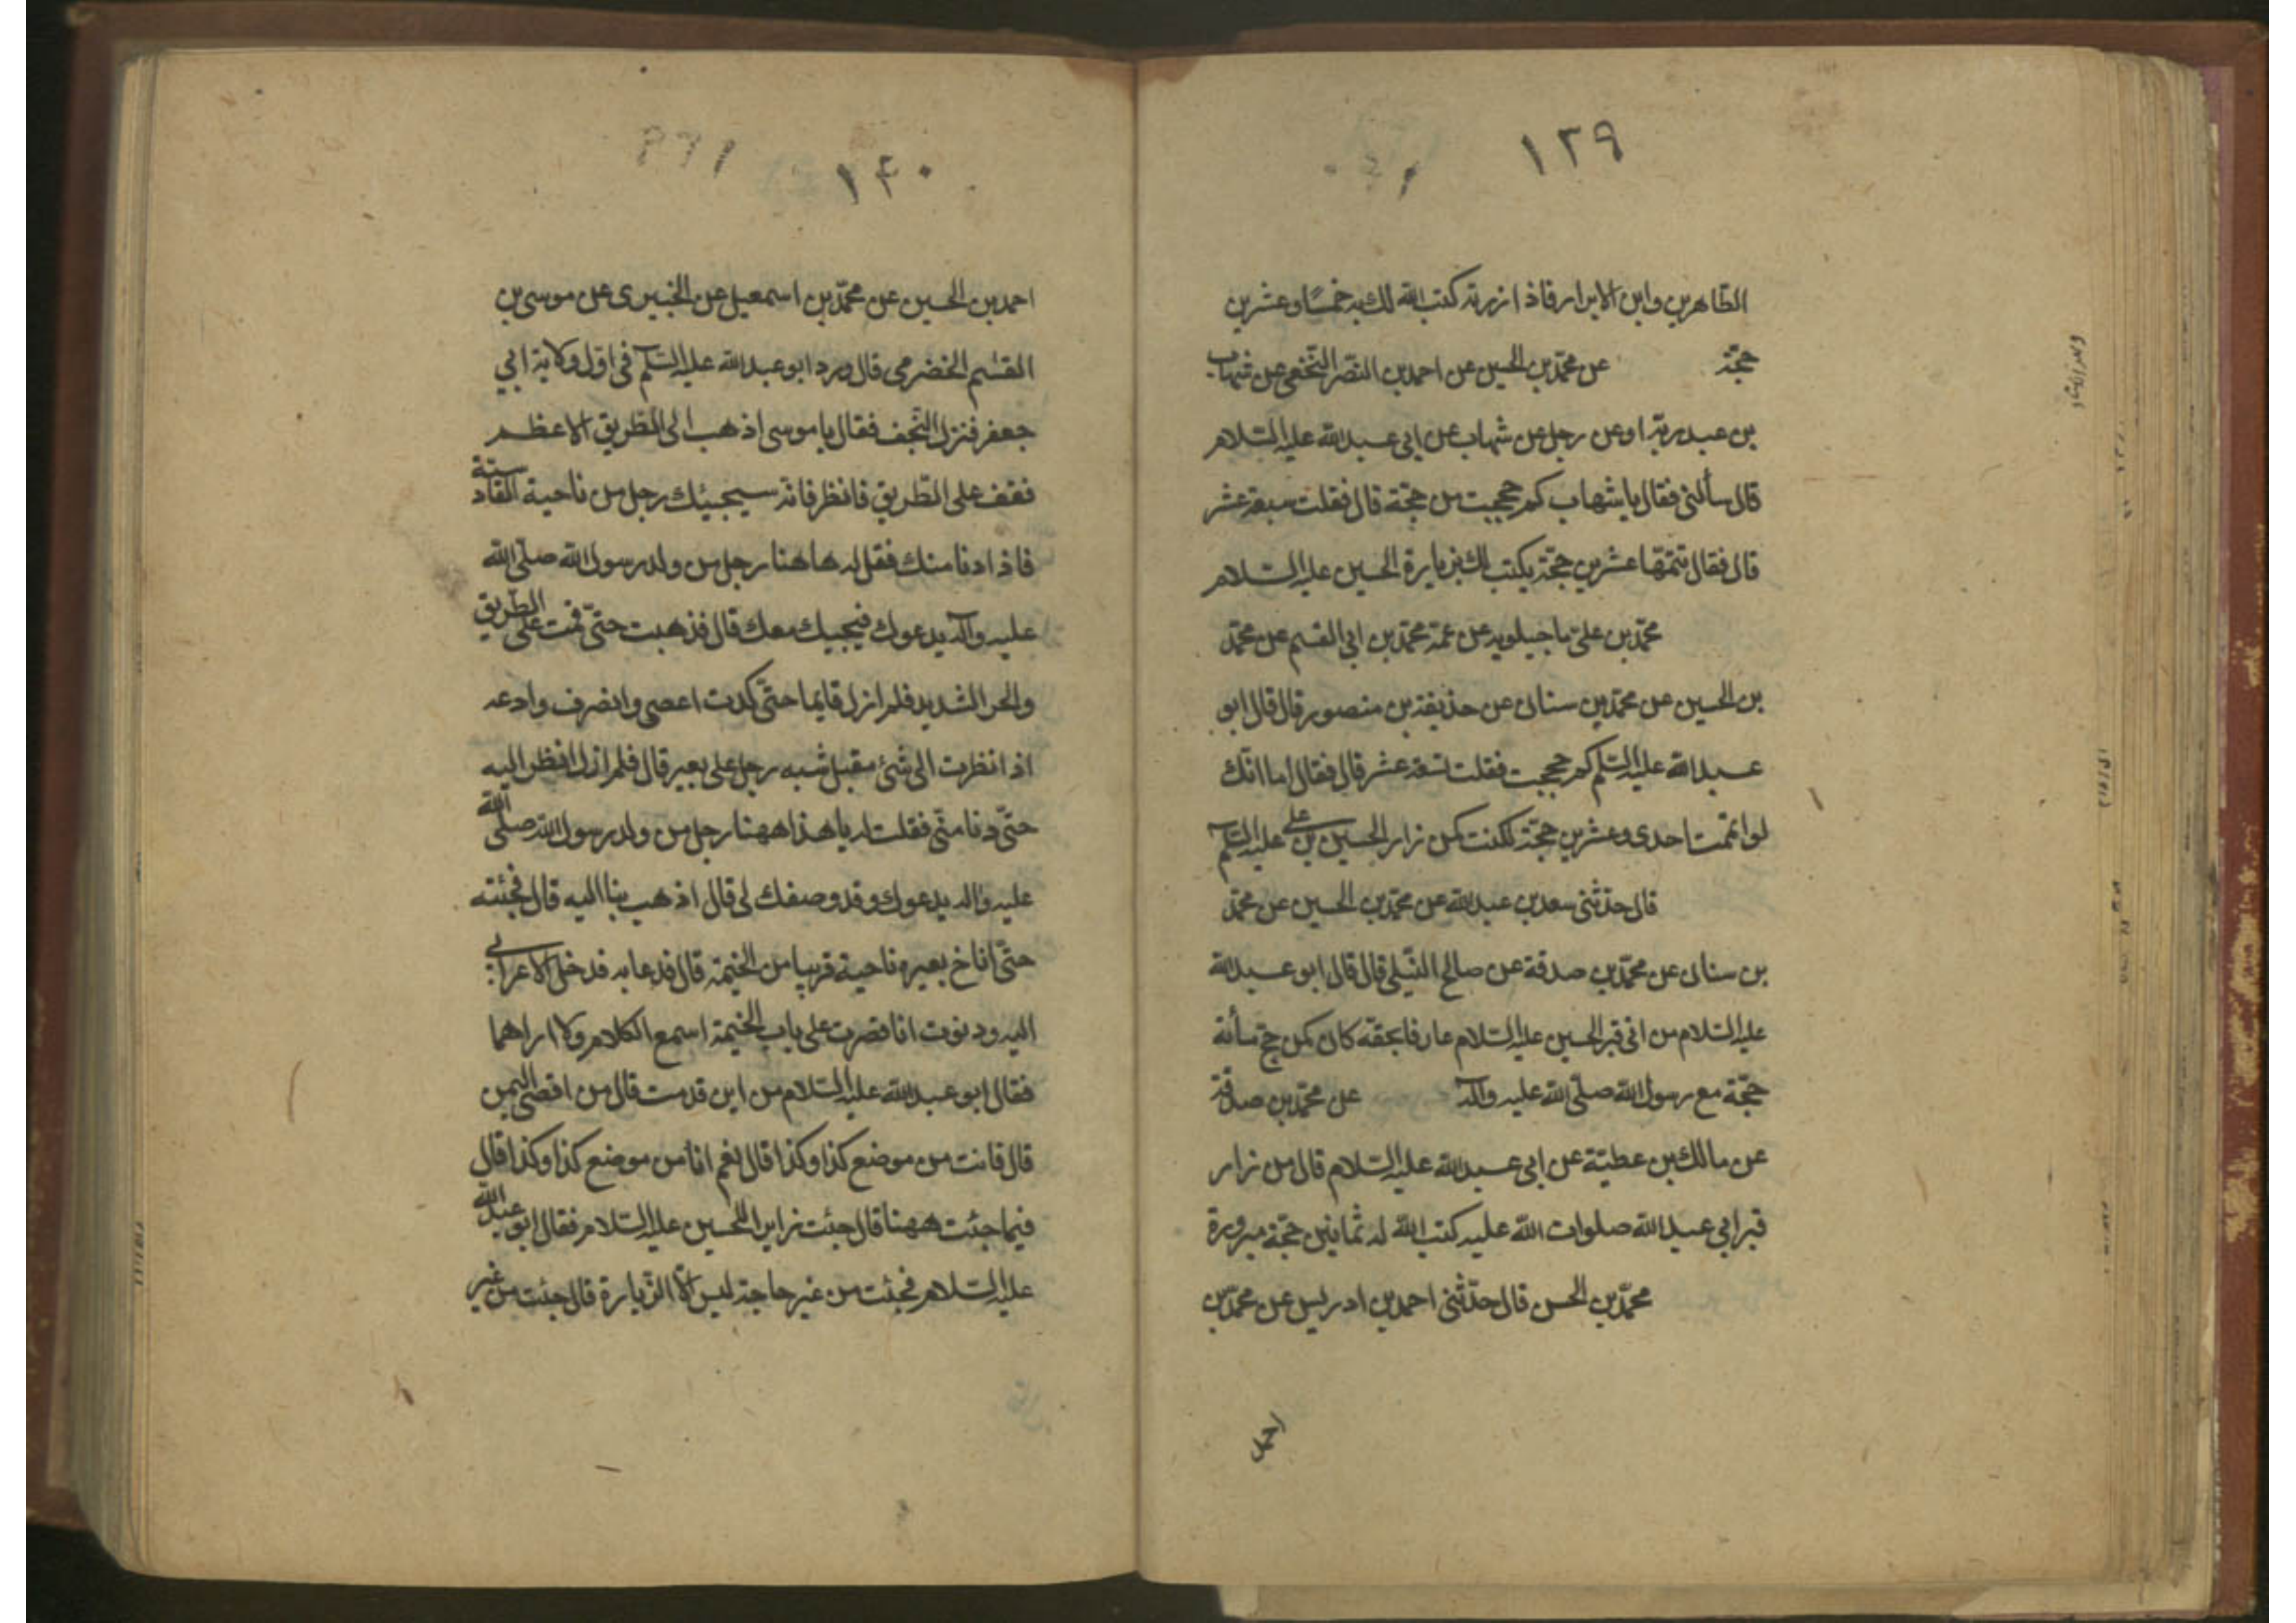 ١٣٩
الطاهرين وابن الابرار فاذا زرته كتب الله لك به خمسًا وعشرين
حجّة عن محمّد بن الحسين عن احمد بن النضر النخعى عن شهاب
بن عبد ربّه او عن رجل عن شهاب عن ابى عبد الله عليه السّلام
قال سألنى فقال يا شهاب كم حججت من حجّة قال فقلت سبعة عشر
قال فقال تتمّها عشرين حجّة يكتب لك بزيارة الحسين عليه السّلام
محمّد بن علىّ ماجيلويه عن عمّه محمّد بن ابى القسم عن محمّد
بن الحسين عن محمّد بن سنان عن حذيفة بن منصور قال قال ابو
عبد الله عليه السّلم كم حججت فقلت تسعة عشر قال فقال اما انّك
لو اتممت احدى وعشرين حجّة لكنت كمن زار الحسين بن على عليه السّلم
قال حدّثنى سعد بن عبد الله عن محمّد بن الحسين عن محمّد
بن سنان عن محمّد بن صدقة عن صالح النّيلى قال قال ابو عبد الله
عليه السّلام من اتى قبر الحسين عليه السّلام عارفا بحقّه كان كمن حجّ مأئة
حجّة مع رسول الله صلّى الله عليه وآله عن محمّد بن صدقة
عن مالك بن عطيّة عن ابى عبد الله عليه السّلام قال من زار
قبر ابي عبد الله صلوات الله عليه كتب الله له ثمانين حجّة مبرورة
محمّد بن الحسن قال حدّثنى احمد بن ادريس عن محمّد بن
احمد
١٤٠
احمد بن الحسين عن محمّد بن اسمعيل عن الخيبرى عن موسى بن
القسم الخضرمى قال ورد ابو عبد الله عليه السّلم فى اوّل ولاية ابي
جعفر فنزل النّجف فقال يا موسى اذهب الى الطّريق الاعظم
فقف على الطّريق فانظر فانّه سيجيئك رجل من ناحية القادسيّة
فاذا دنا منك فقل له هاهنا رجل من ولد رسول الله صلّى الله
عليه وآله يدعوك فيجيبك معك قال فذهبت حتّى قمت على الطّريق
والحر الشديد فلم ازل قايما حتّى كدت اعصى وانصرف وادعه
اذا نظرت الى شئ مقبل شبه رجل على بعير قال فلم ازل انظر اليه
حتّى دنا منّى فقلت له يا هذا ههنا رجل من ولد رسول الله صلّى الله
عليه وآله يدعوك وقد وصفك لى قال اذهب بنا اليه قال فجئته
حتّى اناخ بعيره ناحية قريبا من الخيمة قال فدعا به فدخل الاعرابى
اليه ودنوت انا فصرت على باب الخيمة اسمع الكلام ولا اراهما
فقال ابو عبد الله عليه السّلام من اين قدمت قال من اقصى اليمن
قال فانت من موضع كذا وكذا قال نعم انا من موضع كذا وكذا قال
فيما جئت ههنا قال جئت زايرا للحسين عليه السّلام فقال ابو عبد الله
عليه السّلام فجئت من غير حاجة ليس الّا الزّيارة قال جئت من غير